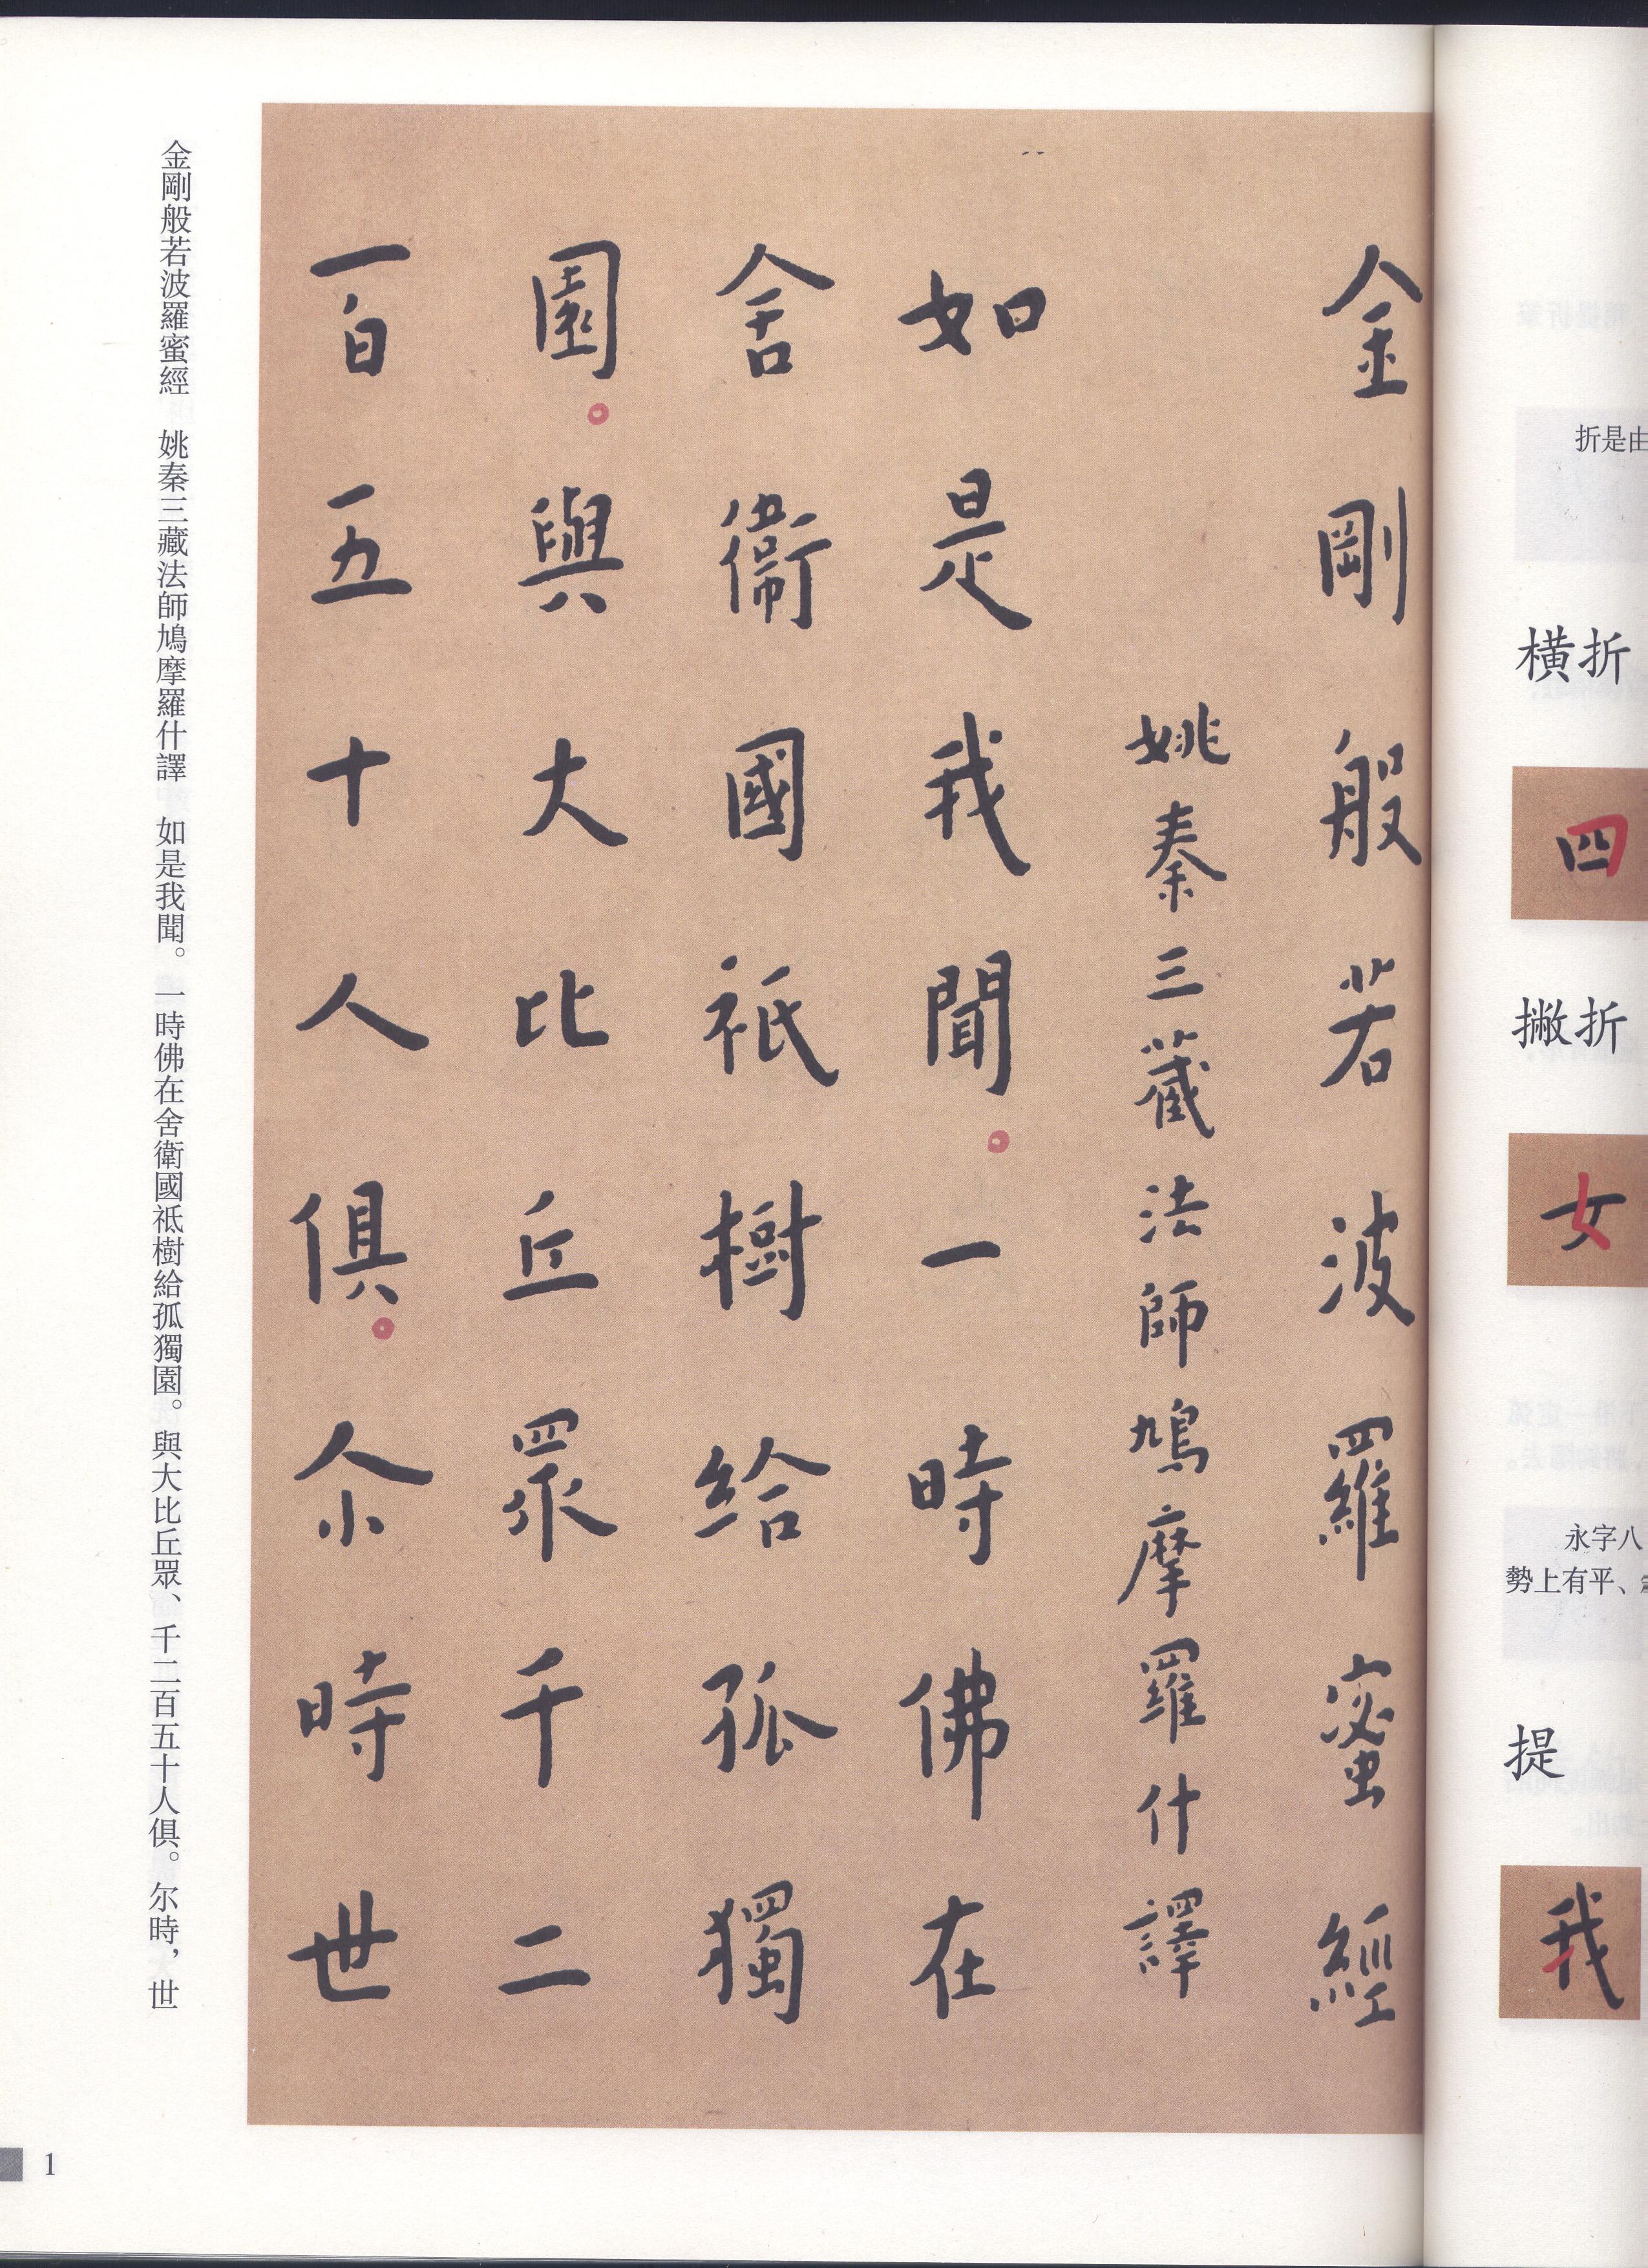 金剛般若波羅蜜經
姚秦三藏法師鳩摩羅什譯
如是我聞。一時佛在
舍衞國祇樹給孤獨
園。與大比丘眾千二
百五十人俱。尒時世
金剛般若波羅蜜經　姚秦三藏法師鳩摩羅什譯　如是我聞。一時佛在舍衛國祇樹給孤獨園。與大比丘眾、千二百五十人俱。尔時，世
1
折是由
橫折
四
撇折
女
永字八
勢上有平、
提
我